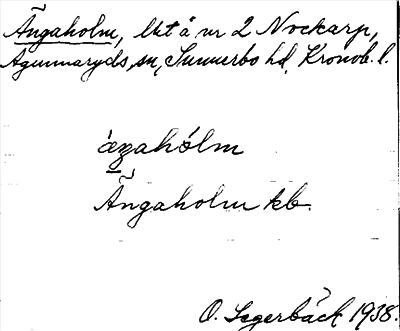 Ängaholm, lkt å nr 2 Nockarp,
Agunnaryds sn, Sunnerbo hd, Kronob. l.
Ängaholm kb.
O. Segerbäck 1938.